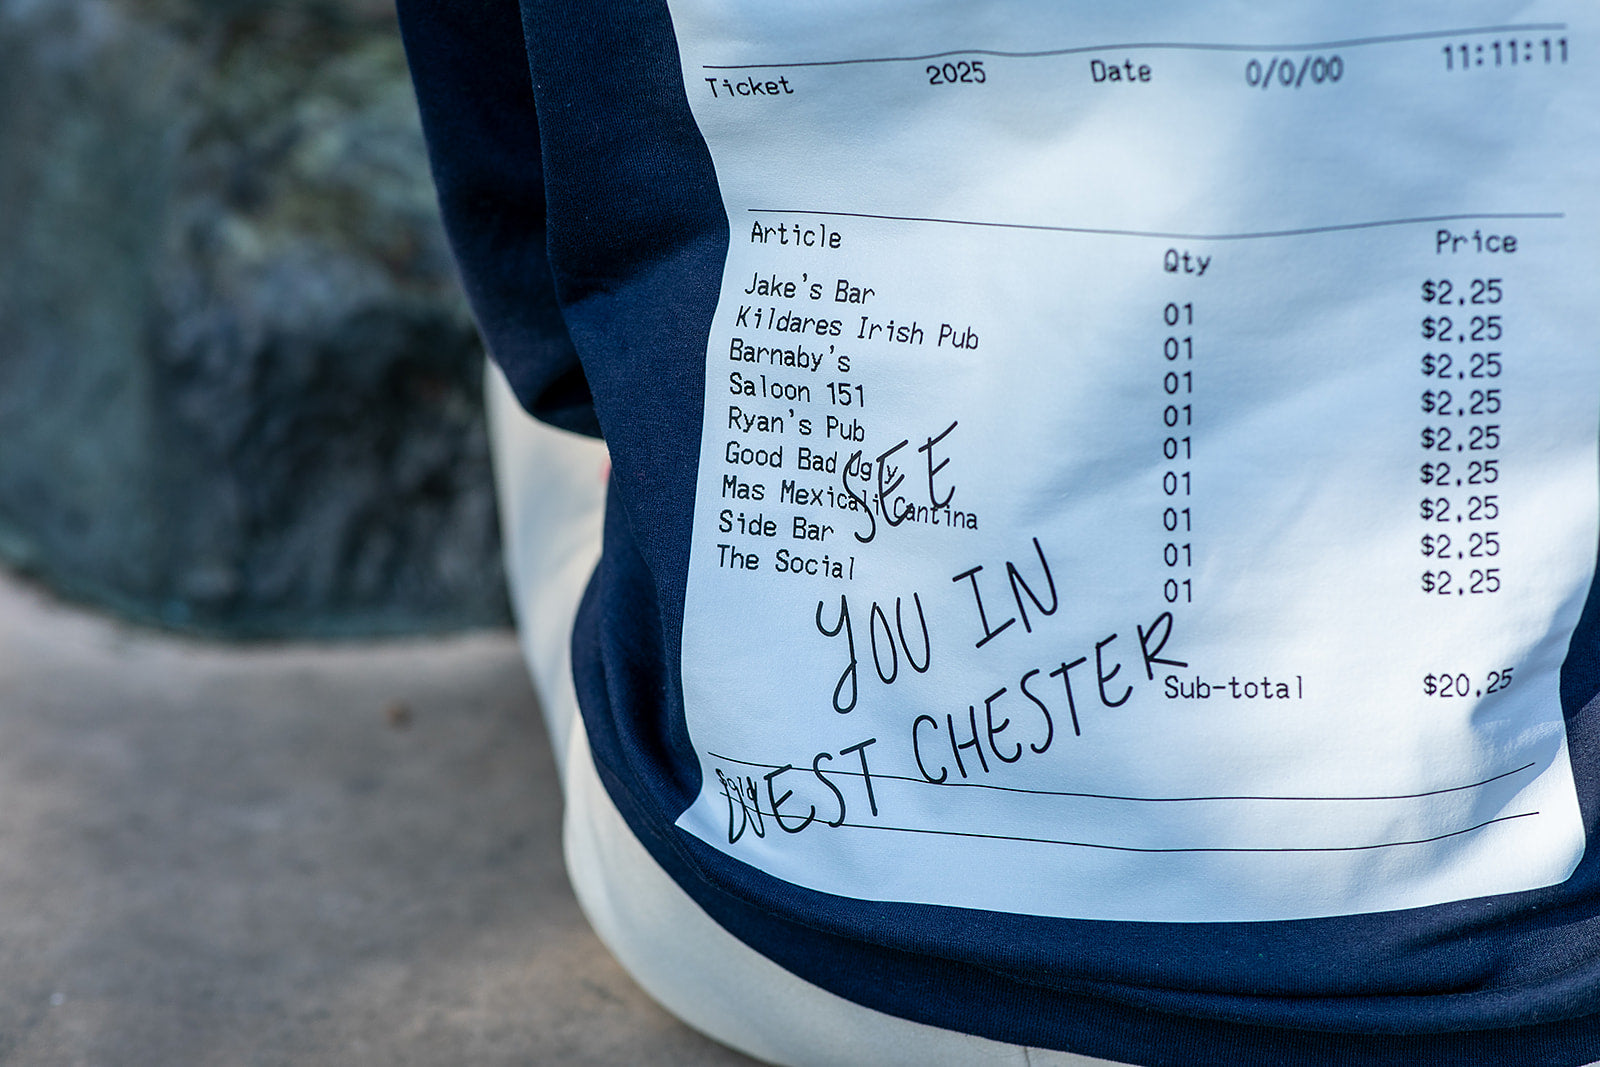 Ticket 2025 Date 0/0/00 11:11:11
Article Qty Price
Jake's Bar 01 $2.25
Kildares Irish Pub 01 $2.25
Barnaby's 01 $2.25
Saloon 151 01 $2.25
Ryan's Pub 01 $2.25
Good Bad Ugly 01 $2.25
Mas Mexicali Cantina 01 $2.25
Side Bar 01 $2.25
The Social 01 $2.25
SEE
YOU IN
WEST CHESTER
Sub-total $20.25